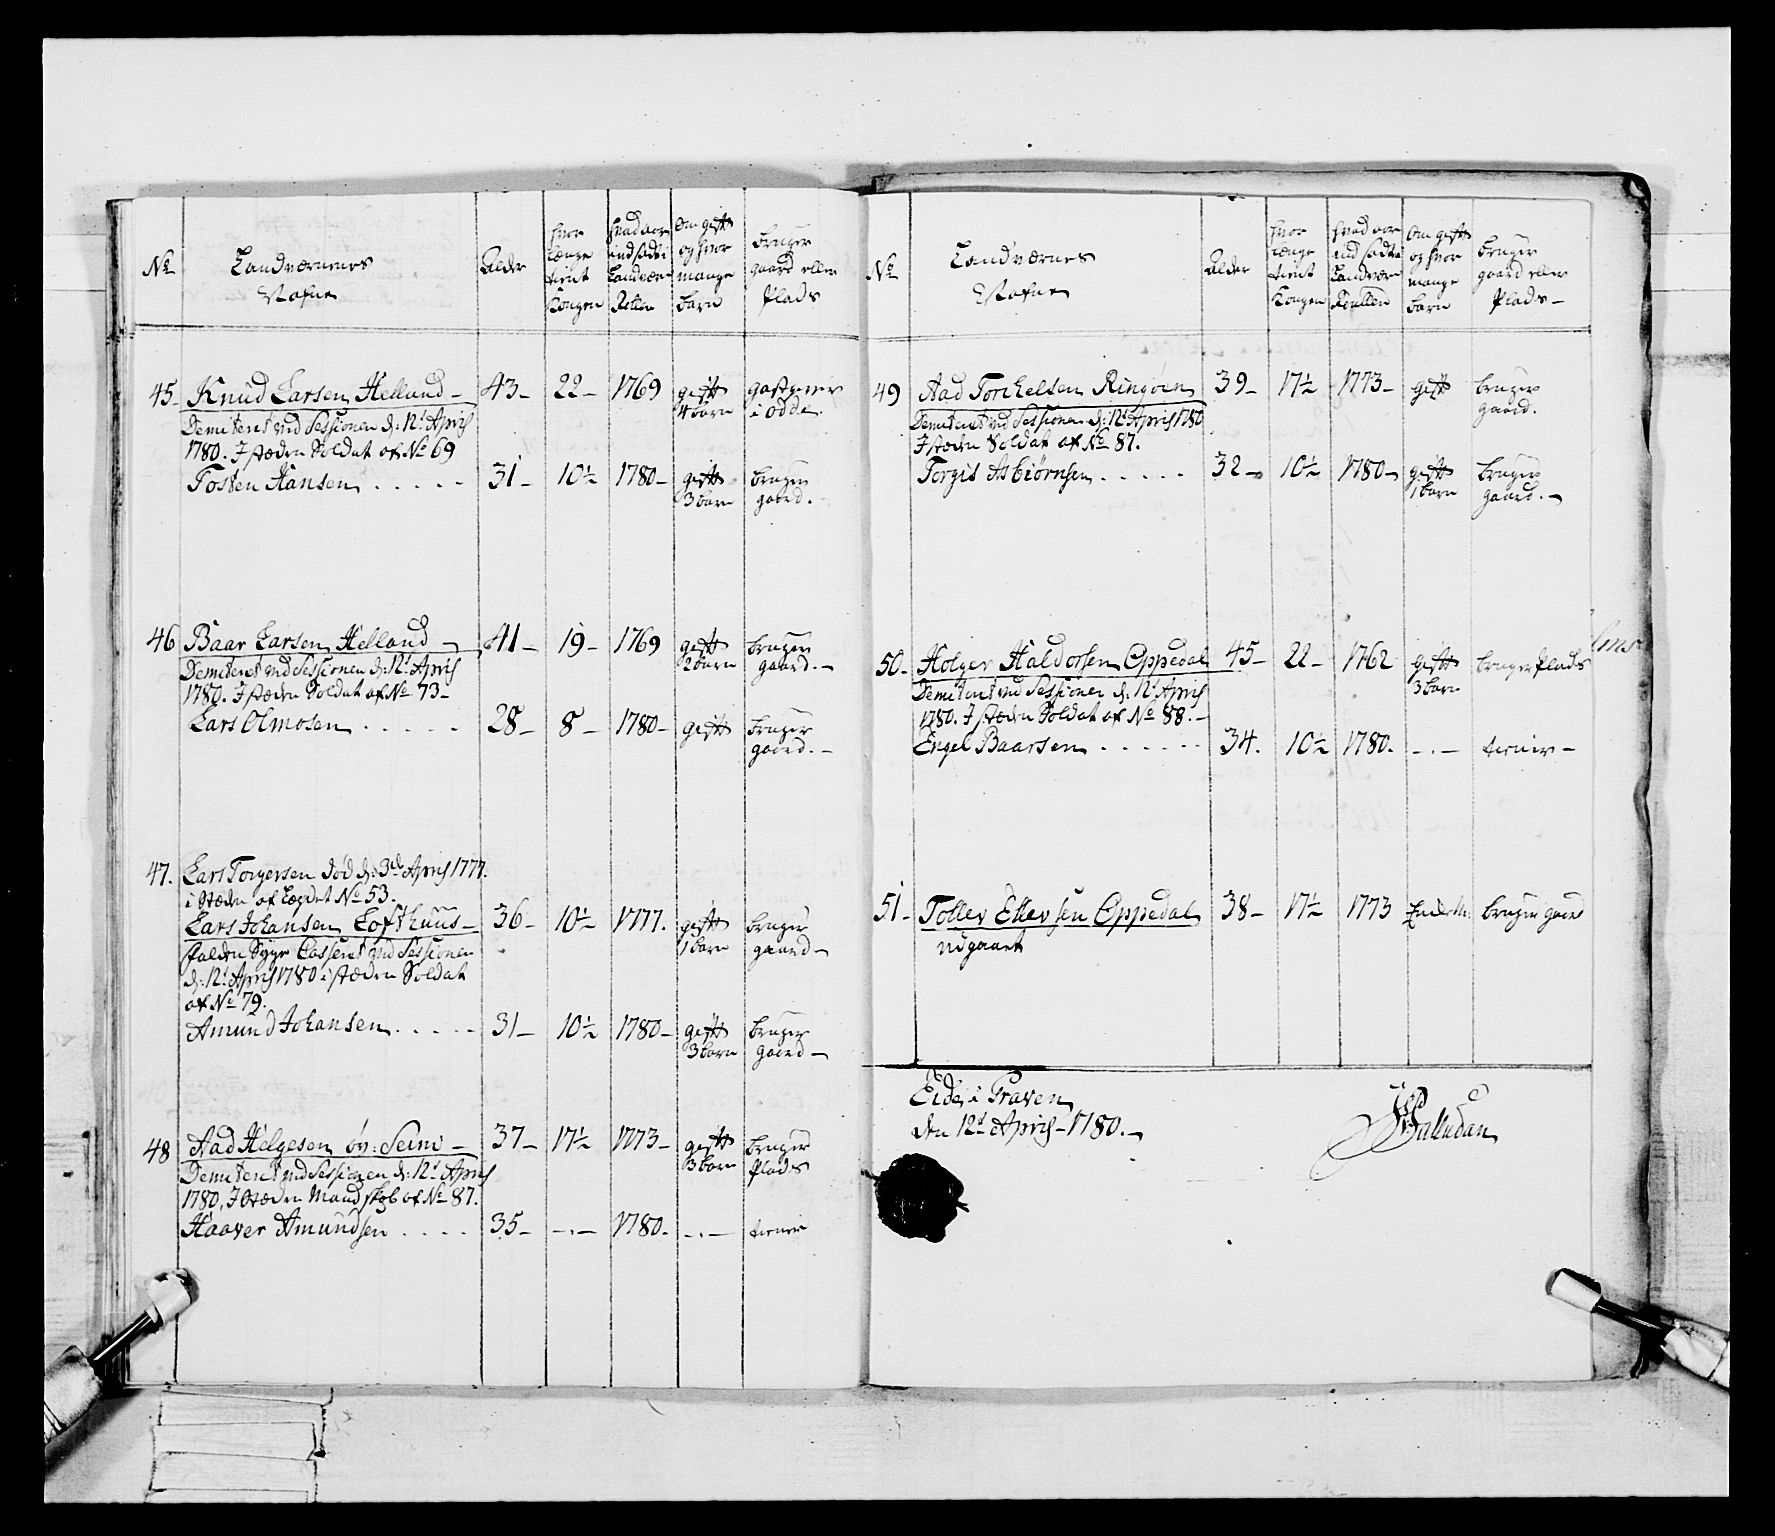 No
Landværnenes
Nafne
Alder
hvor
længe
tient
Kongen
hvad aar
indsadt i
Landværn
Rullen
Om gift
og hvor
mange
børn
bruger
gaard eller
Plads
45 Knud Larsen Helland 43 22 1769 gift gastgiver
4 børn i Odde
Demiteret ved Sessionen d: 12t April
1780. I stæden Soldat af No 69
Tosten Hansen 31 10½ 1780 gift bruger
3 børn gaard.
46 Baar Larsen Helland 41 19 1769 gift bruger
2 børn gaard.
Demiteret ved Sessionen d: 12t April
1780. I stæden Soldat af No 73
Lars Olmosen 28 8 1780 gift bruger
gaard.
47. Lars Torgersen død d: 3de April 1777.
i stæden af Lægdet No 53.
Lars Johansen Lofthuus 36 10½ 1777. gift bruger
1 barn gaard
falden Syge Casseret ved Sessionen
d: 12t April 1780 i stæden Soldat
af No 79.
Amund Johansen 31 10½ 1780 gift bruger
3 børn gaard
48 Aad Helgesen øv: Seim 37 17½ 1773 gift bruger
3 børn Plads
Demiteret ved Sessionen d: 12t April
1780, I stæden Mandskab af No 87.
Haaver Amundsen 35 -.- 1780. -.- tiener
No
Landværnes
Nafne
Alder
hvor
længe
tient
Kongen
hvad aar
indsadt i
Landværn
Rullen
Om gift
og hvor
mange
børn
bruger
gaard eller
Plads
49 Aad Torchelsen Ringøen 39 17½ 1773 gift bruger
gaard.
Demiteret ved Sessionen d: 12t April 1780
I stæden Soldat af No 87.
Torgis Asbiørnsen 32 10½ 1780 gift bruger
1 barn gaard.
50. Holger Haldorsen Oppedal 45 22 1762 gift bruger Plads
3 børn
Demiteret ved Sessionen d: 12t April
1780. I stæden Soldat af No 88.
Engel Baarsen 34. 10½ 1780. -.- tiener
51 Tollev Ellevsen Oppedal 38 17½ 1773 bruger gaard
udgaaet
Eide i Graven
den 12t April 1780.
Palludan